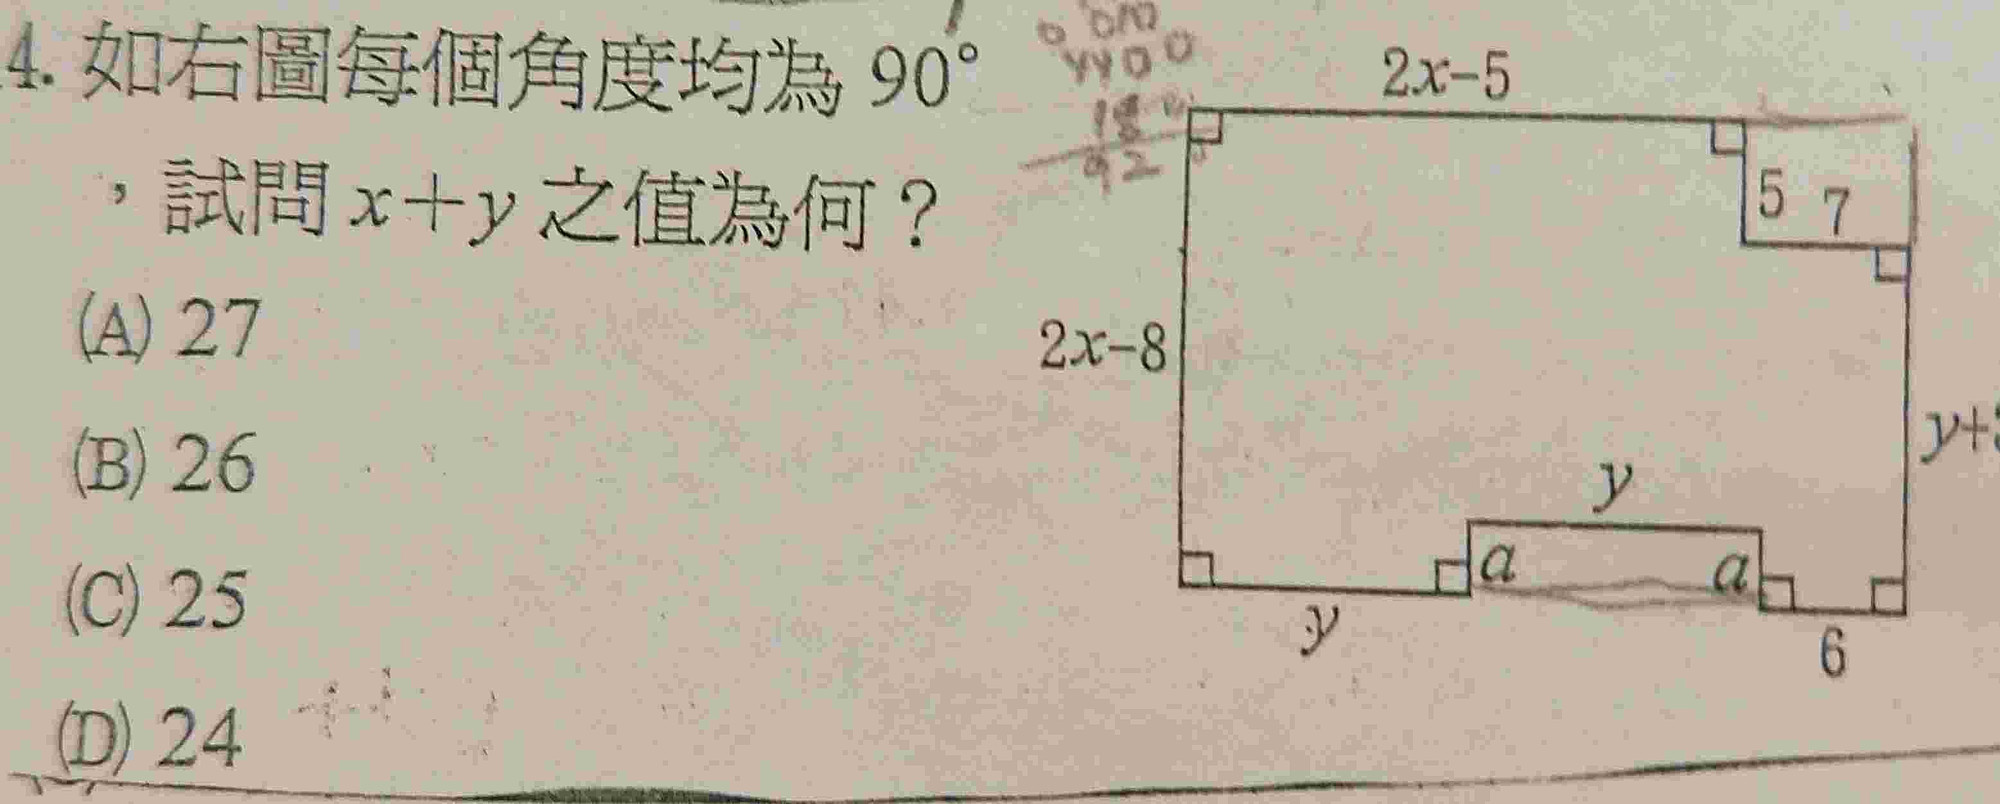 4. 如右圖每個角度均為 90°
，試問 x+y 之值為何？
(A) 27
(B) 26
(C) 25
(D) 24
2x-5
5 7
2x-8
y+
y
a a
y
6
92